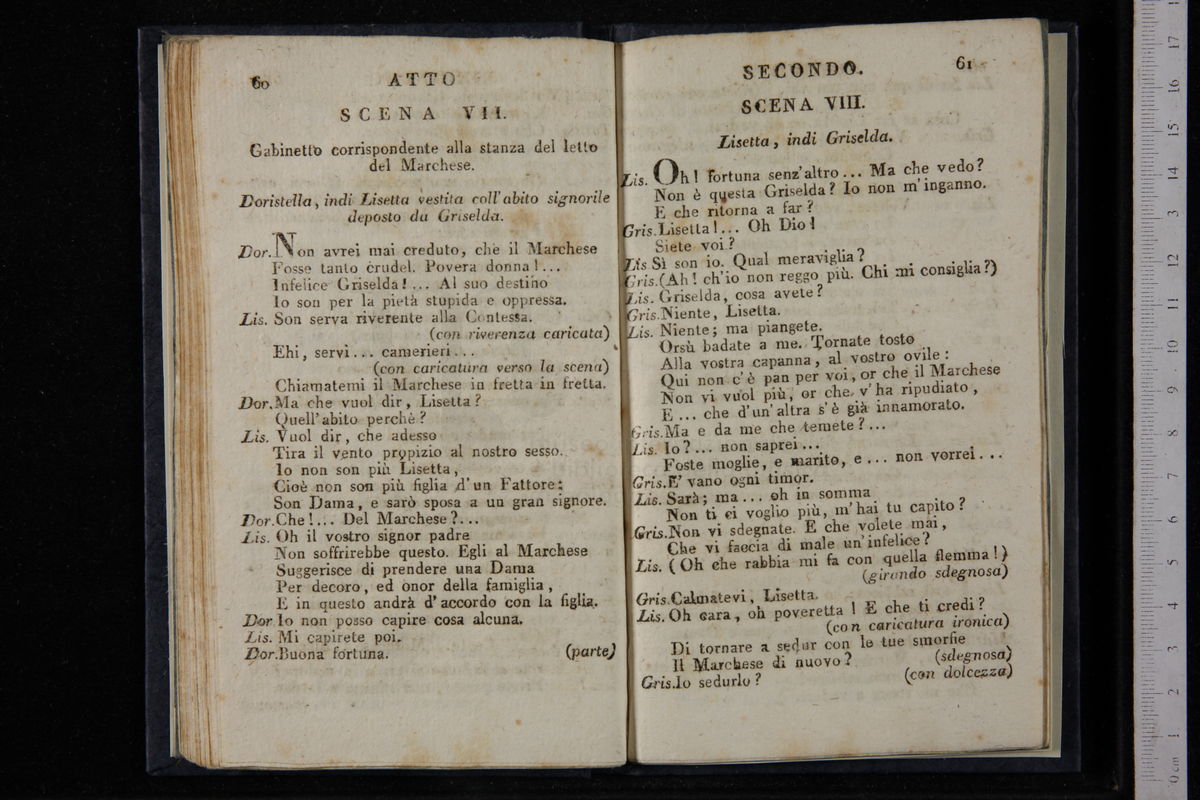 60
ATTO
SCENA VII.
Gabinetto corrispondente alla stanza del letto
del Marchese.
Doristella, indi Lisetta vestita coll'abito signorile
deposto da Griselda.
Dor. Non avrei mai creduto, che il Marchese
Fosse tanto crudel. Povera donna!...
Infelice Griselda!... Al suo destino
Io son per la pietà stupida e oppressa.
Lis. Son serva riverente alla Contessa.
(con riverenza caricata)
Ehi, servi... camerieri...
(con caricatura verso la scena)
Chiamatemi il Marchese in fretta in fretta.
Dor. Ma che vuol dir, Lisetta?
Quell'abito perchè?
Lis. Vuol dir, che adesso
Tira il vento propizio al nostro sesso.
Io non son più Lisetta,
Cioè non son più figlia d'un Fattore:
Son Dama, e sarò sposa a un gran signore.
Dor. Che!... Del Marchese?...
Lis. Oh il vostro signor padre
Non soffrirebbe questo. Egli al Marchese
Suggerisce di prendere una Dama
Per decoro, ed onor della famiglia,
E in questo andrà d'accordo con la figlia.
Dor Io non posso capire cosa alcuna.
Lis. Mi capirete poi.
Dor. Buona fortuna. (parte)
SECONDO. 61
SCENA VIII.
Lisetta, indi Griselda.
Lis. Oh! fortuna senz'altro... Ma che vedo?
Non è questa Griselda? Io non m'inganno.
E che ritorna a far?
Gris. Lisetta!... Oh Dio!
Siete voi?
Lis Sì son io. Qual meraviglia?
Gris. (Ah! ch'io non reggo più. Chi mi consiglia?)
Lis. Griselda, cosa avete?
Gris. Niente, Lisetta.
Lis. Niente; ma piangete.
Orsù badate a me. Tornate tosto
Alla vostra capanna, al vostro ovile:
Qui non c'è pan per voi, or che il Marchese
Non vi vuol più, or che v'ha ripudiato,
E... che d'un'altra s'è già innamorato.
Gris. Ma e da me che temete?...
Lis. Io?... non saprei...
Foste moglie, e marito, e... non vorrei...
Gris. E' vano ogni timor.
Lis. Sarà; ma... oh in somma
Non ti ci voglio più, m'hai tu capito?
Gris. Non vi sdegnate. E che volete mai,
Che vi faccia di male un'infelice?
Lis. (Oh che rabbia mi fa con quella flemma!)
(girando sdegnosa)
Gris. Calmatevi, Lisetta.
Lis. Oh cara, oh poveretta! E che ti credi?
(con caricatura ironica)
Di tornare a sedur con le tue smorfie
Il Marchese di nuovo? (sdegnosa)
Gris. Io sedurlo? (con dolcezza)
0 cm 1 2 3 4 5 6 7 8 9 10 11 12 3 14 15 16 17